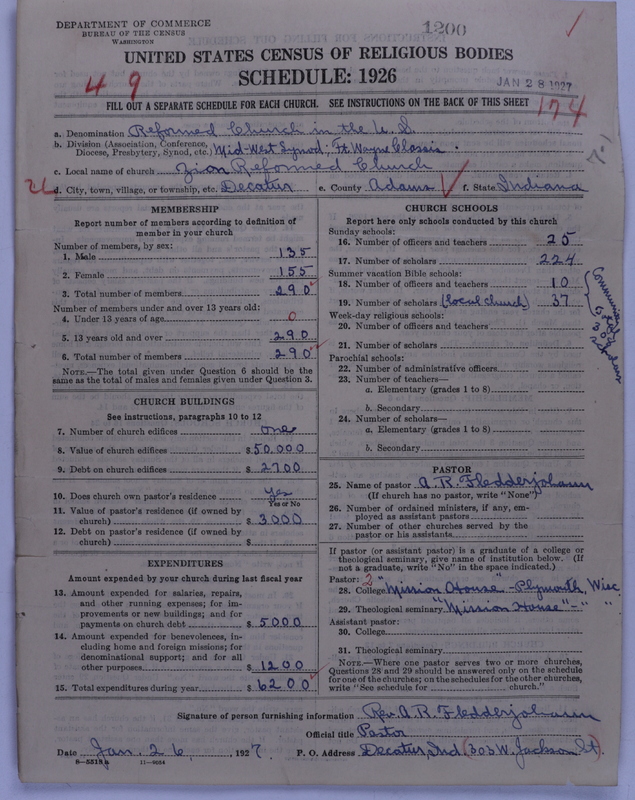 DEPARTMENT OF COMMERCE
BUREAU OF THE CENSUS
WASHINGTON
1200
UNITED STATES CENSUS OF RELIGIOUS BODIES
SCHEDULE: 1926
4 9
JAN 28 1927
FILL OUT A SEPARATE SCHEDULE FOR EACH CHURCH. SEE INSTRUCTIONS ON THE BACK OF THIS SHEET
174
a. Denomination Reformed Church in the U.S.
b. Division (Association, Conference, Diocese, Presbytery, Synod, etc.) Mid-West Synod; Ft. Wayne Classis.
c. Local name of church Zion Reformed Church
d. City, town, village, or township, etc. Decatur e. County Adams f. State Indiana
MEMBERSHIP
Report number of members according to definition of
member in your church
Number of members, by sex:
1. Male 135
2. Female 155
3. Total number of members 290
Number of members under and over 13 years old:
4. Under 13 years of age 0
5. 13 years old and over 290
6. Total number of members 290
NOTE.—The total given under Question 6 should be
same as the total of males and females given under Question 3.
CHURCH BUILDINGS
See instructions, paragraphs 10 to 12
7. Number of church edifices one
8. Value of church edifices $50.000
9. Debt on church edifices $2700
10. Does church own pastor's residence yes
Yes or No
11. Value of pastor's residence (if owned by
church) $3000
12. Debt on pastor's residence (if owned by
church) $
EXPENDITURES
Amount expended by your church during last fiscal year
13. Amount expended for salaries, repairs,
and other running expenses; for im-
provements or new buildings; and for
payments on church debt $5000
14. Amount expended for benevolences, in-
cluding home and foreign missions; for
denominational support; and for all
other purposes $1200
15. Total expenditures during year $6200
CHURCH SCHOOLS
Report here only schools conducted by this church
Sunday schools:
16. Number of officers and teachers 25
17. Number of scholars 224
Summer vacation Bible schools:
18. Number of officers and teachers 10
19. Number of scholars (local church) 37
Week-day religious schools:
20. Number of officers and teachers
21. Number of scholars
Parochial schools:
22. Number of administrative officers
23. Number of teachers—
a. Elementary (grades 1 to 8)
b. Secondary
24. Number of scholars—
a. Elementary (grades 1 to 8)
b. Secondary
PASTOR
25. Name of pastor A. R. Fledderjohann
(If church has no pastor, write "None")
26. Number of ordained ministers, if any, em-
ployed as assistant pastors
27. Number of other churches served by the
pastor or his assistants
If pastor (or assistant pastor) is a graduate of a college or
theological seminary, give name of institution below. (If
not a graduate, write "No" in the space indicated.)
Pastor: 2
28. College "Mission House"-Plymouth, Wisc.
29. Theological seminary "Mission House"-" "
Assistant pastor:
30. College
31. Theological seminary
NOTE.—Where one pastor serves two or more churches,
Questions 28 and 29 should be answered only on the schedule
for one of the churches; on the schedules for the other churches,
write "See schedule for church."
Signature of person furnishing information Rev. A. R. Fledderjohann
Official title Pastor
Date Jan. 26, 1927 P. O. Address Decatur, Ind. (303 W. Jackson St.)
8—5518a 11—9684